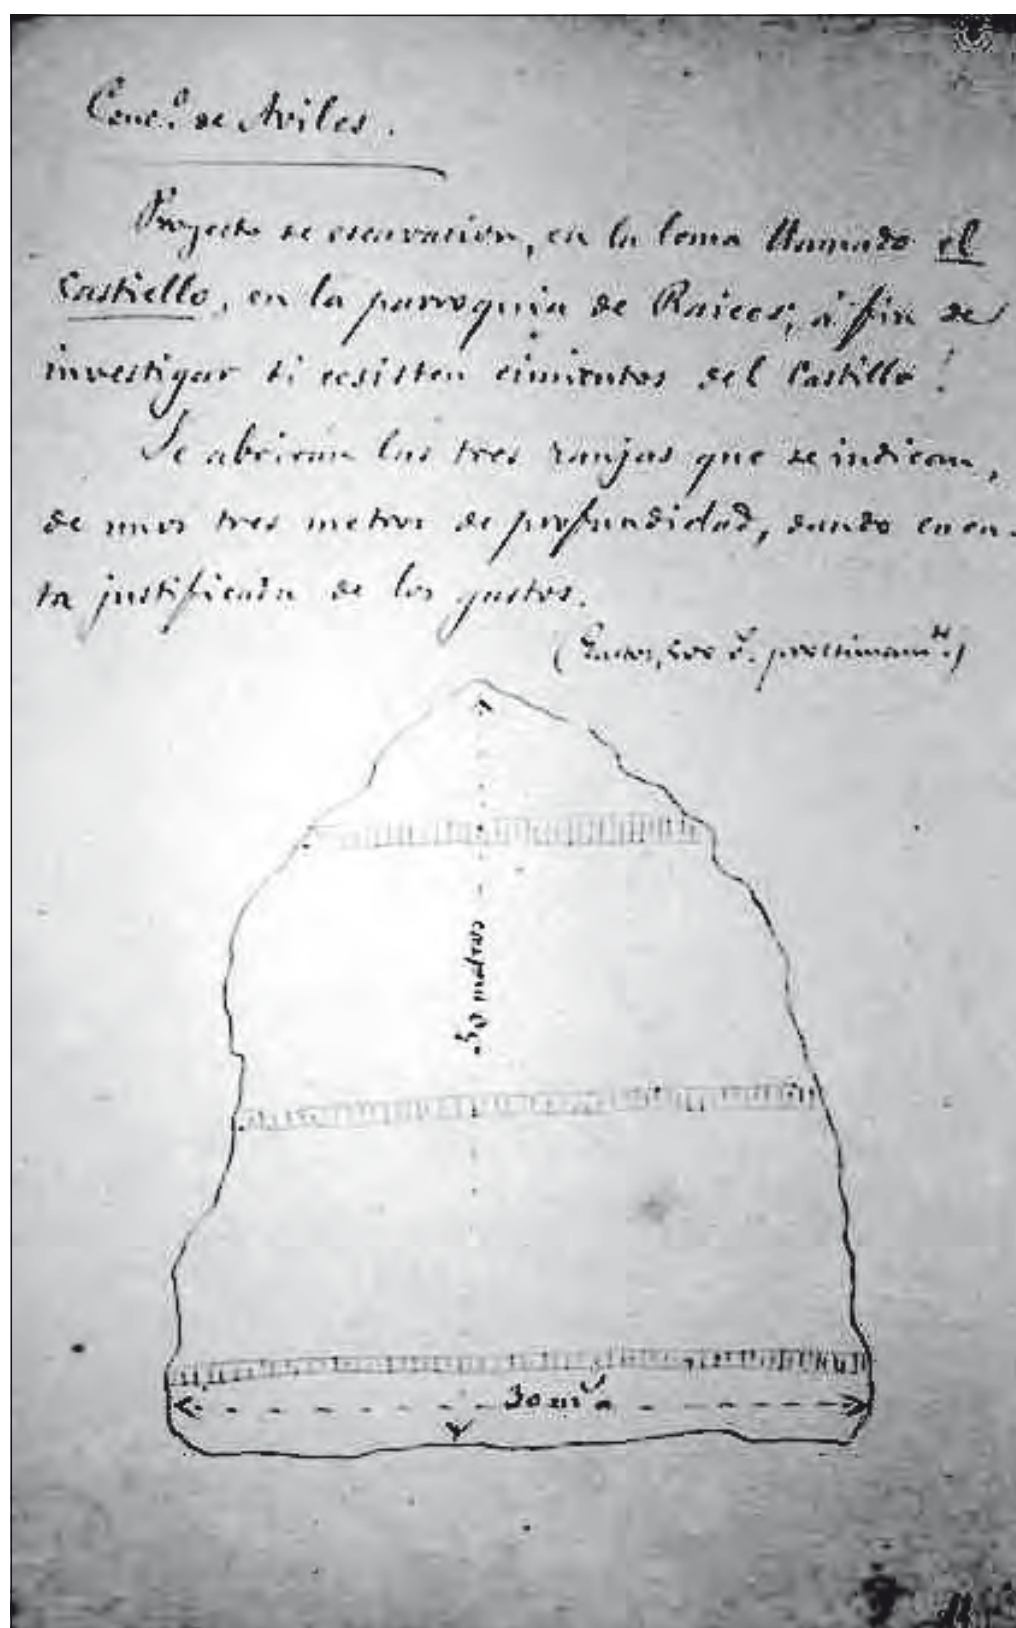 Conc.º de Aviles.
Proyecto de escavacion, en la loma llamado el
Castiello, en la parroquia de Raices, á fin de
investigar si ecsisten cimientos del Castillo!
Se abriran las tres zanjas que se indican,
de unos tres metros de profundidad, dando cuen-
ta justificada de los gastos.
(Gastos, 500 r.
50 metros
30 m.s